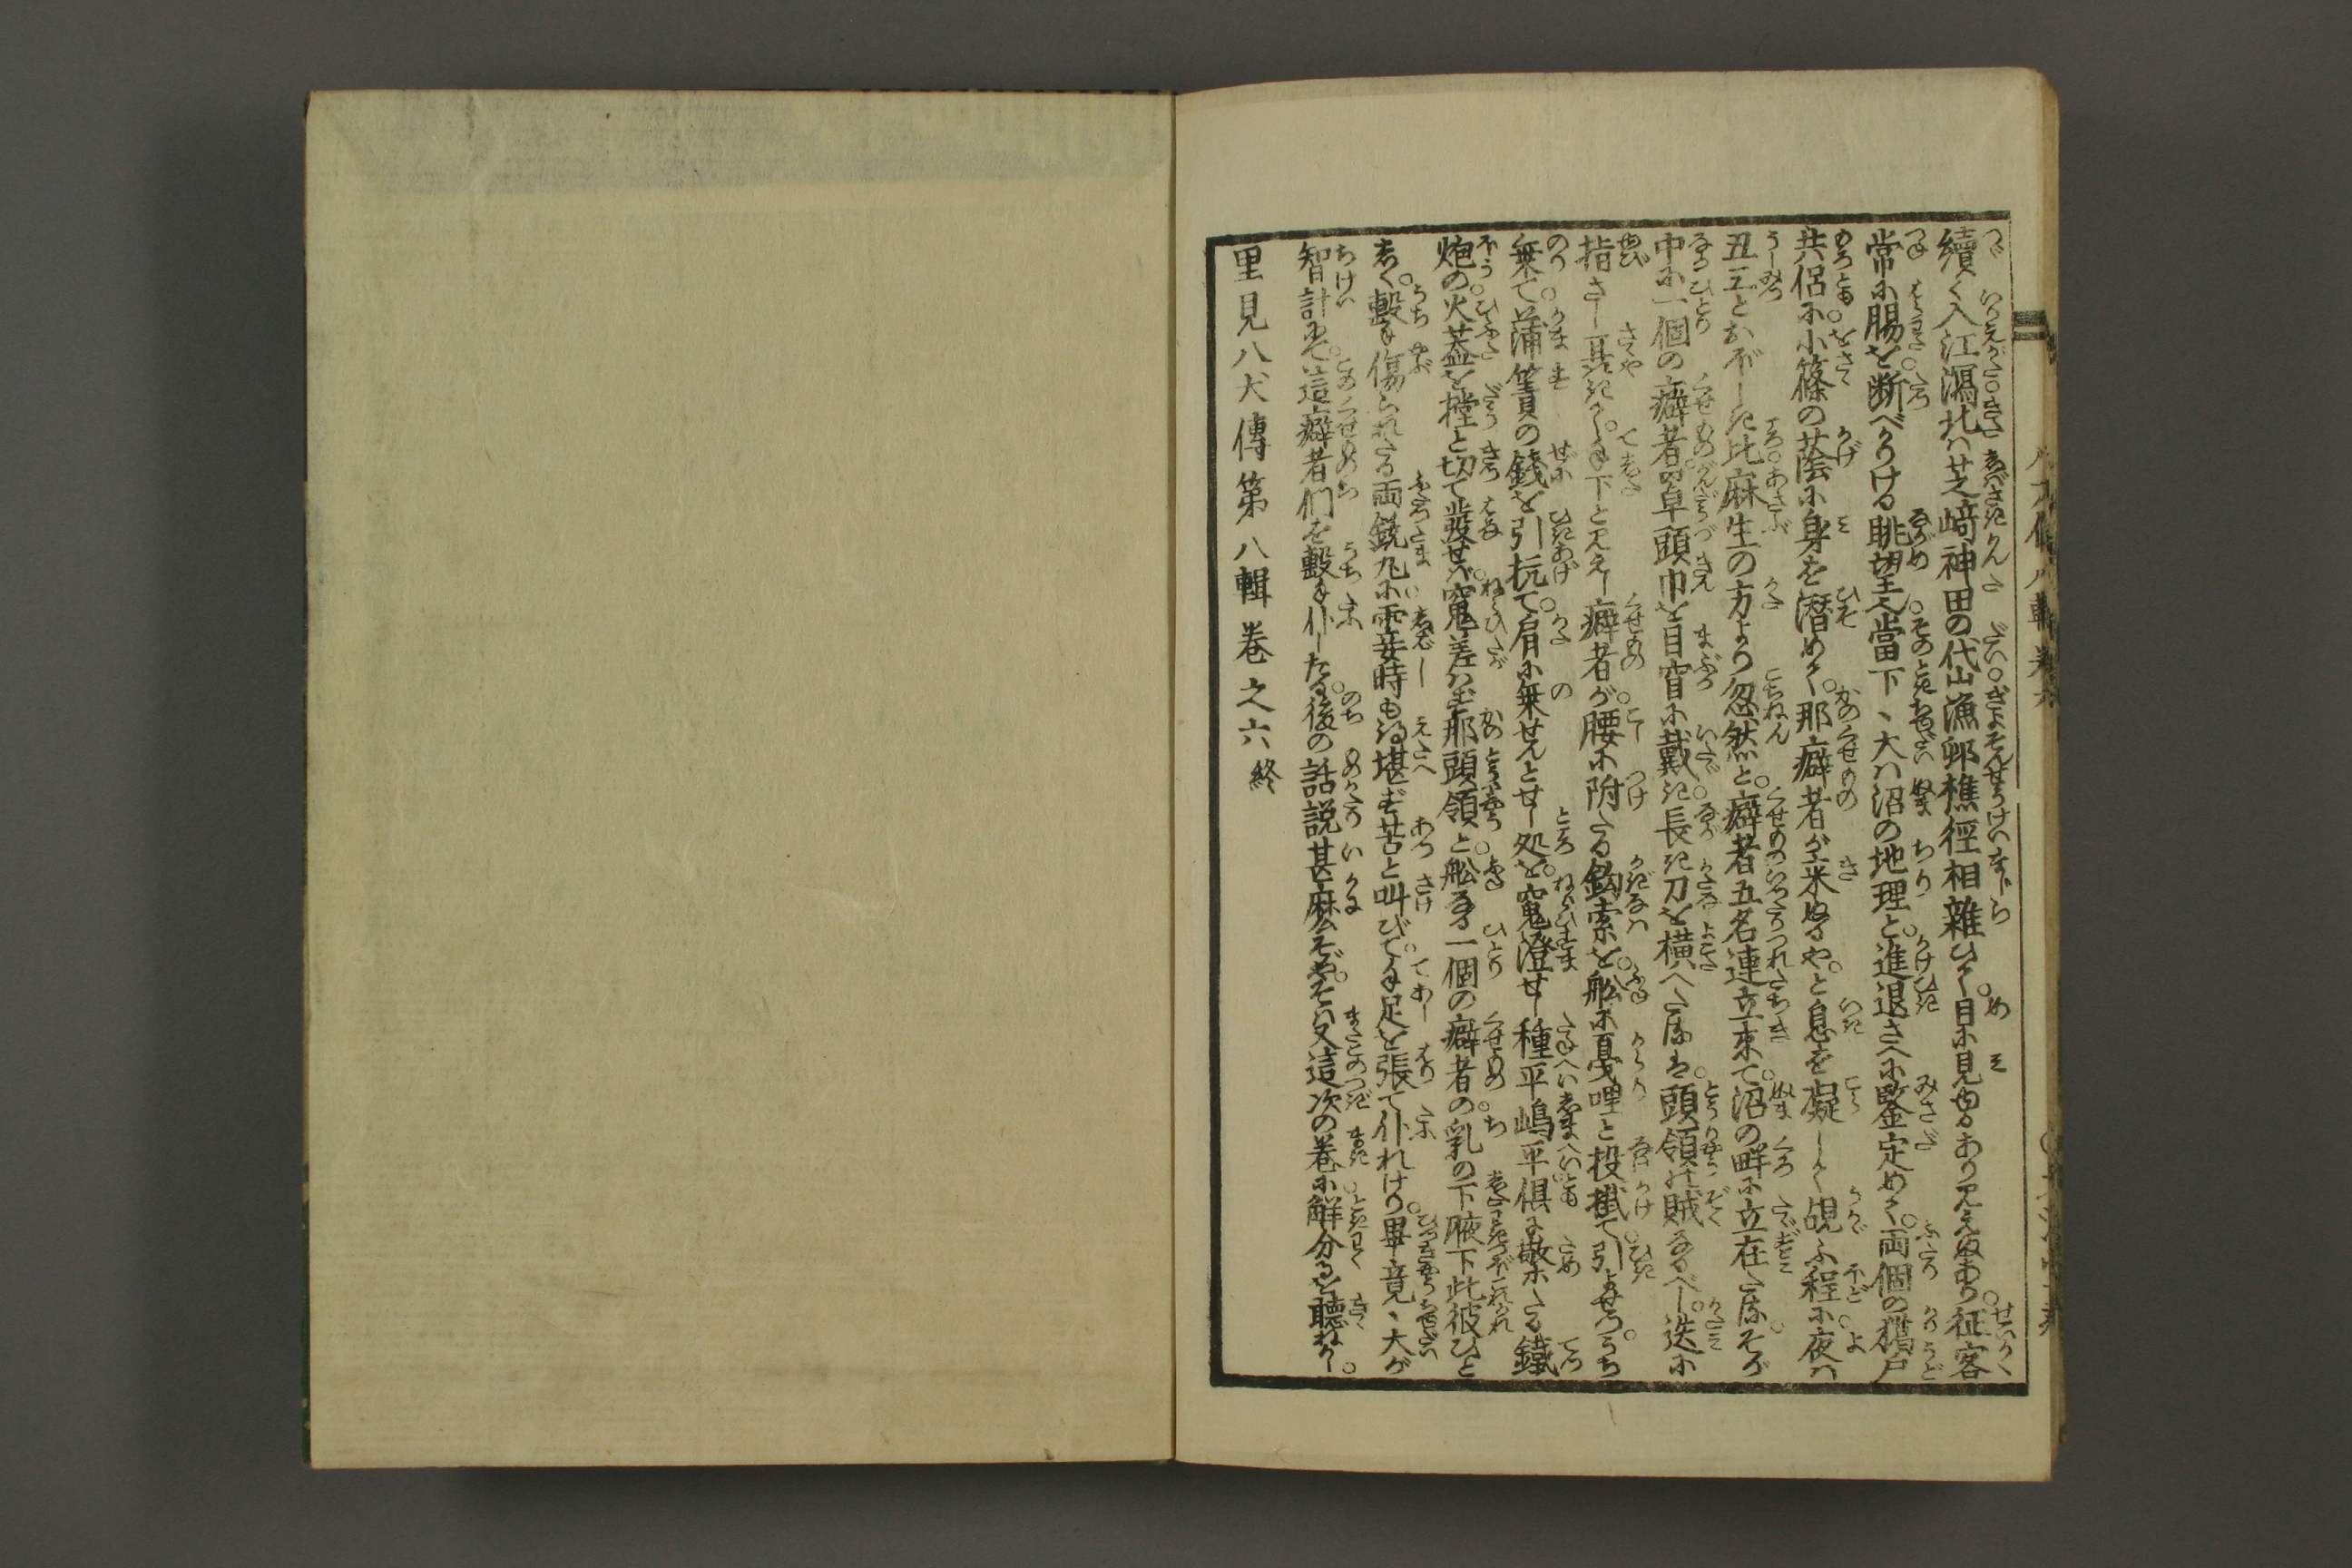 續く入江潟北は芝﨑神田の代山漁邨樵徑相雜ひて目に見ゆるあり見えぬあり征客
常に腸を断べかりける眺望之當下丶大は沼の地理と進退さへに鑒定めて両個の獦戸
共侶に小篠の蔭に身を潜めて那癖者が來ぬるやと息を凝して覘ふ程に夜は
丑三とおぼしき比麻生の方より忽然と癖者五名連立來て沼の畔に立在たりそが
中に一個の癖者皁頭巾を目窅に戴き長き刀を横へたるは頭領の賊なるべし迭に
指さし耳語きて手下と見えし癖者が腰に附たる鈎索を舩に戛哩と投掛て引よせつうち
乗て蒲簀の錢を引抗て肩に乗せんとせし処を窺澄せし種平嶋平倶に敬たる鐵
炮の火蓋を摚と切て發せば窺差はず那頭領と舩なる一個の癖者の乳の下腋下此彼ひと
しく轂傷られたる両銃丸に霎時も得堪ず苦と叫びて手足を張て仆れけり畢竟丶大が
智計にて這癖者們を轂仆したる後の話説甚麼ぞやそは又這次の巻に解分るを聴ねかし
里見八犬傳第八輯巻之六終